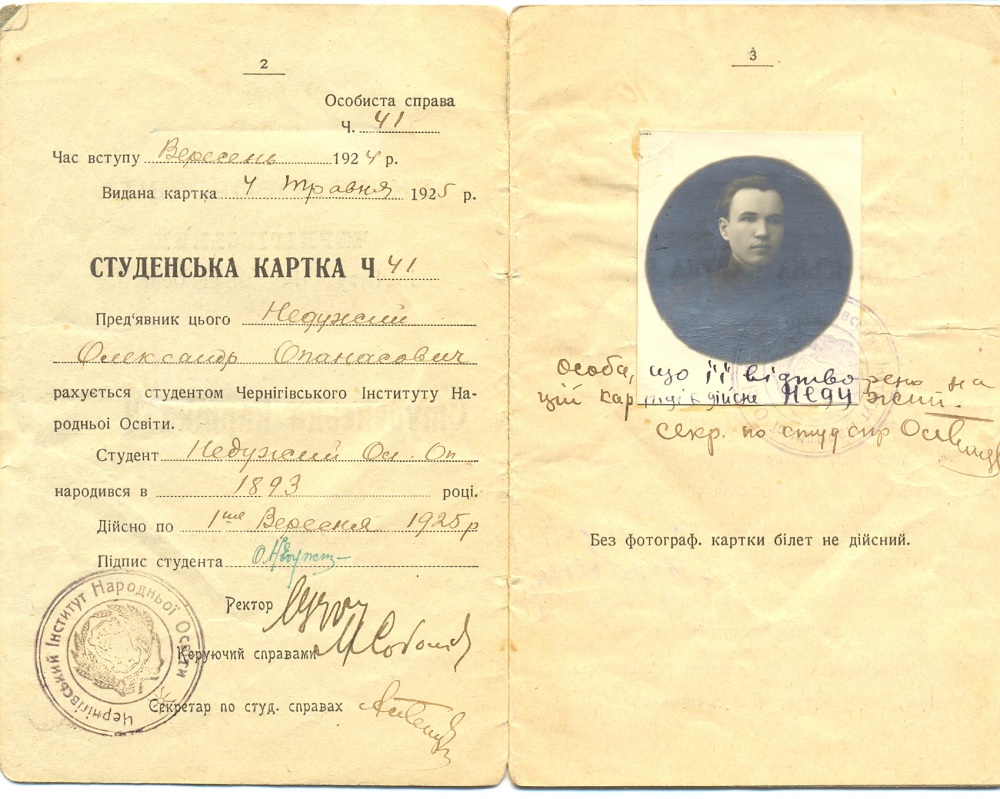 2
Особиста справа
Ч. 41
Час вступу Вересень 1924 р.
Видана картка 4 Травня 1925 р.
СТУДЕНСЬКА КАРТКА Ч 41
Пред'явник цього Недужий
Олександр Опанасович
рахується студентом Чернігівського Інституту На-
родньої Освіти.
Студент Недужий Ол. Оп
народився в 1893 році.
Дійсно по 1ше Вересня 1925 р
Підпис студента
Ректор
Керуючий справами
Секретар по студ. справах
Чернігівський Інститут Народньої Освіти
3
Особа, що її відтворено на
цій картці є дійсне Недужий.
секр. по студ спр
Без фотограф. картки білет не дійсний.